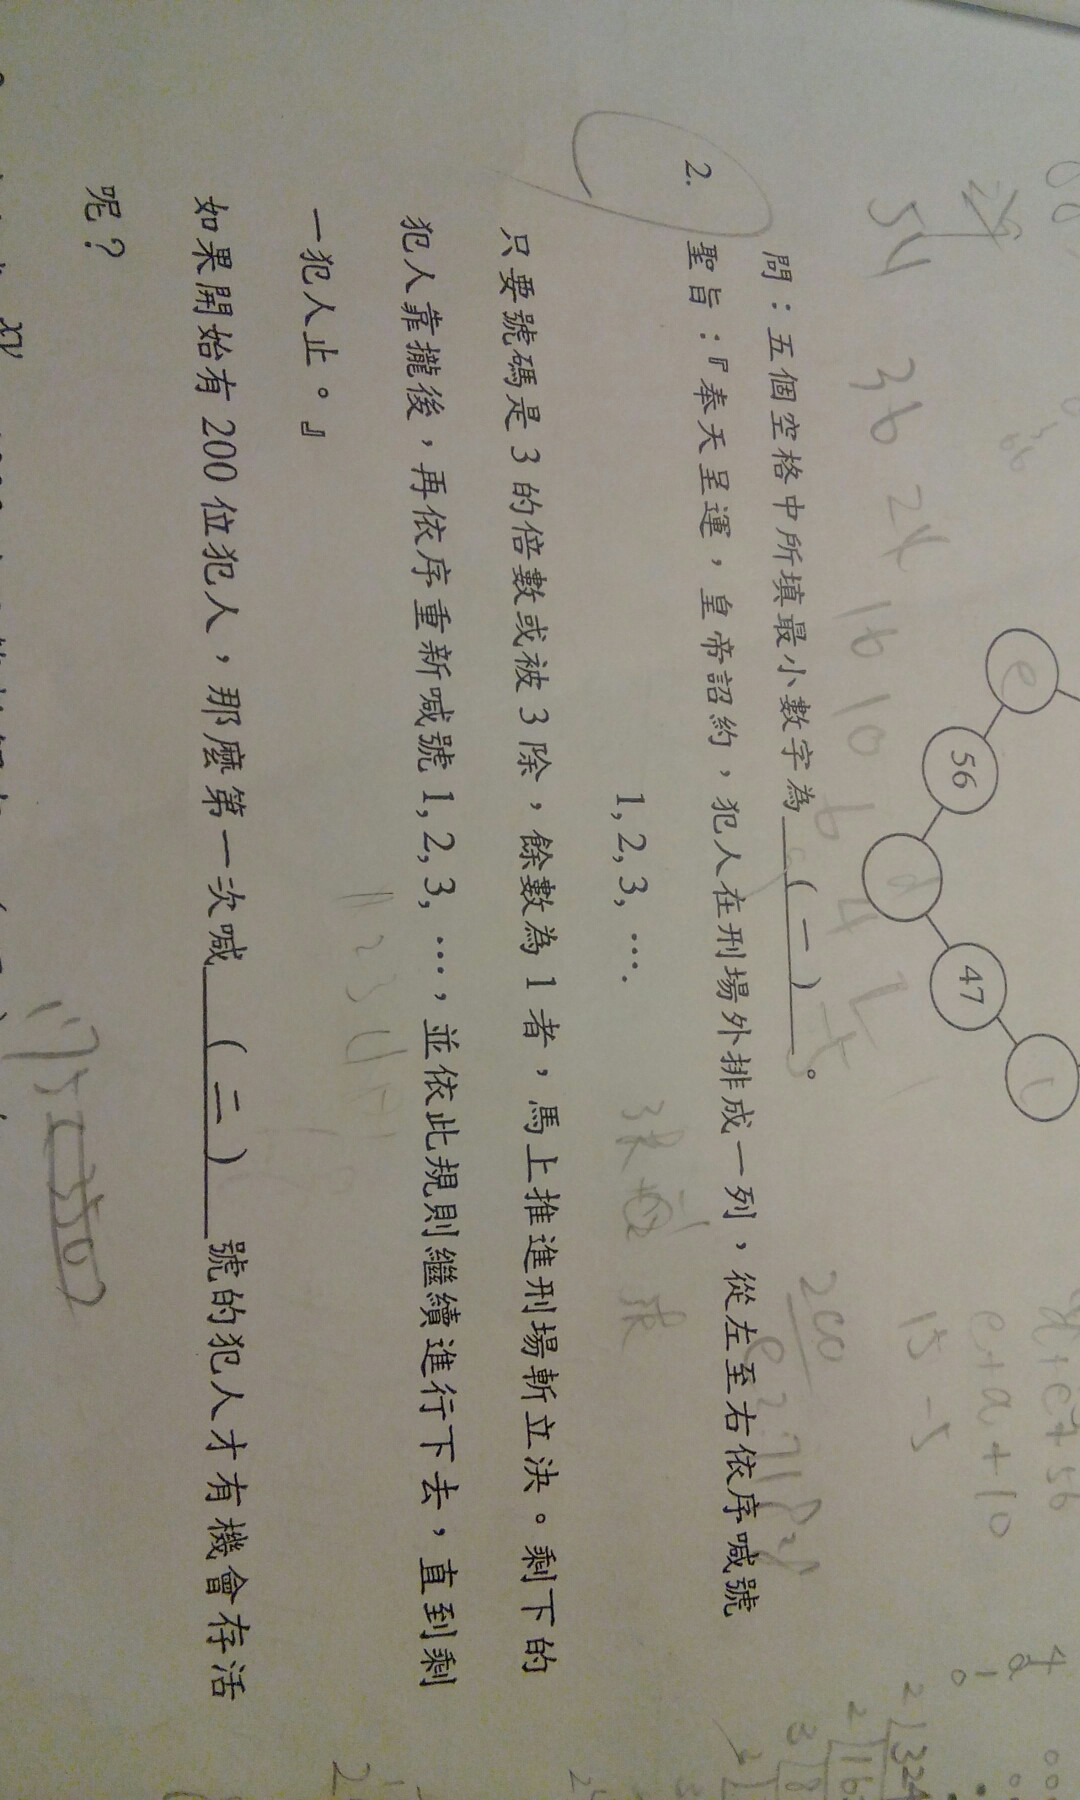 56
47
問：五個空格中所填最小數字為（一）。
2. 聖旨：『奉天呈運，皇帝詔約，犯人在刑場外排成一列，從左至右依序喊號
1, 2, 3, ….
只要號碼是 3 的倍數或被 3 除，餘數為 1 者，馬上推進刑場斬立決。剩下的
犯人靠攏後，再依序重新喊號 1, 2, 3, …，並依此規則繼續進行下去，直到剩
一犯人止。』
如果開始有 200 位犯人，那麼第一次喊（二）號的犯人才有機會存活
呢？
54 36 24 16 10 6 4
200
15 -5
e+a+10